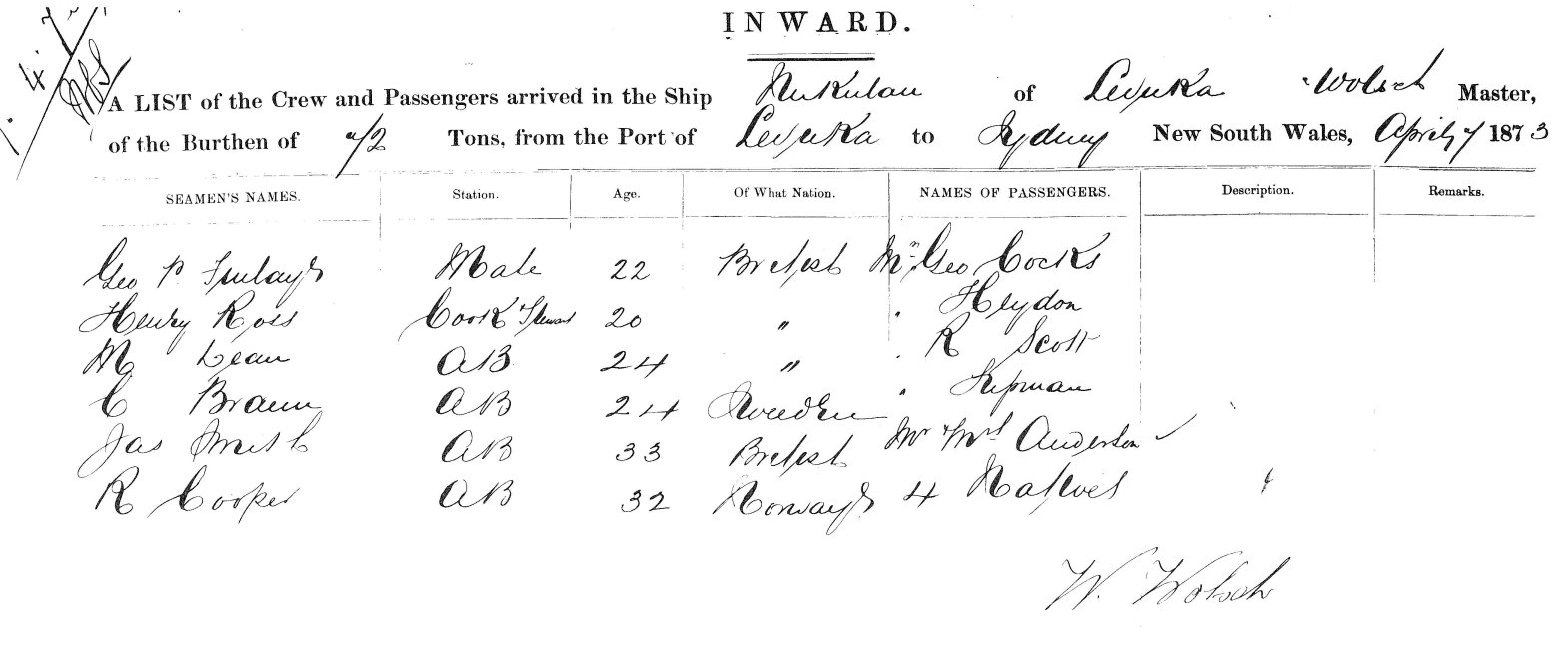 INWARD.
A LIST of the Crew and Passengers arrived in the Ship Nukulau of Levuka Wolsch Master,
of the Burthen of Tons, from the Port of Levuka to Sydney New South Wales, April 7 1873
SEAMEN'S NAMES. Station. Age. Of What Nation. NAMES OF PASSENGERS. Description. Remarks.
Geo P Mate 22 British Mr Geo Cocks
Henry Ross Cook & Steward 20 " " Heydon
M Lean AB 24 " " R Scott
C Braun AB 24 Sweden "
Jas Smith AB 33 British Mr & Mrs Anderson
R Cooper AB 32 Norway 4 Natives
W. Wolsch